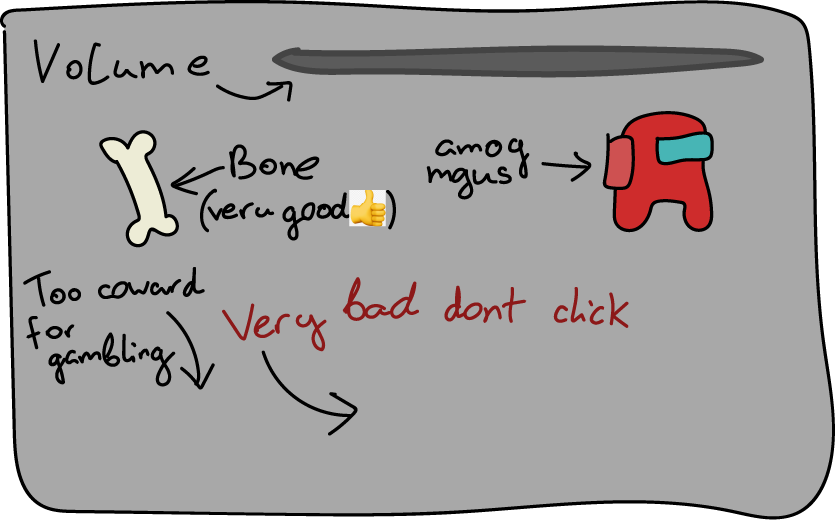 Volume
Bone
(veru good👍)
amog
mgus
Too coward
for
gambling
Very bad dont click